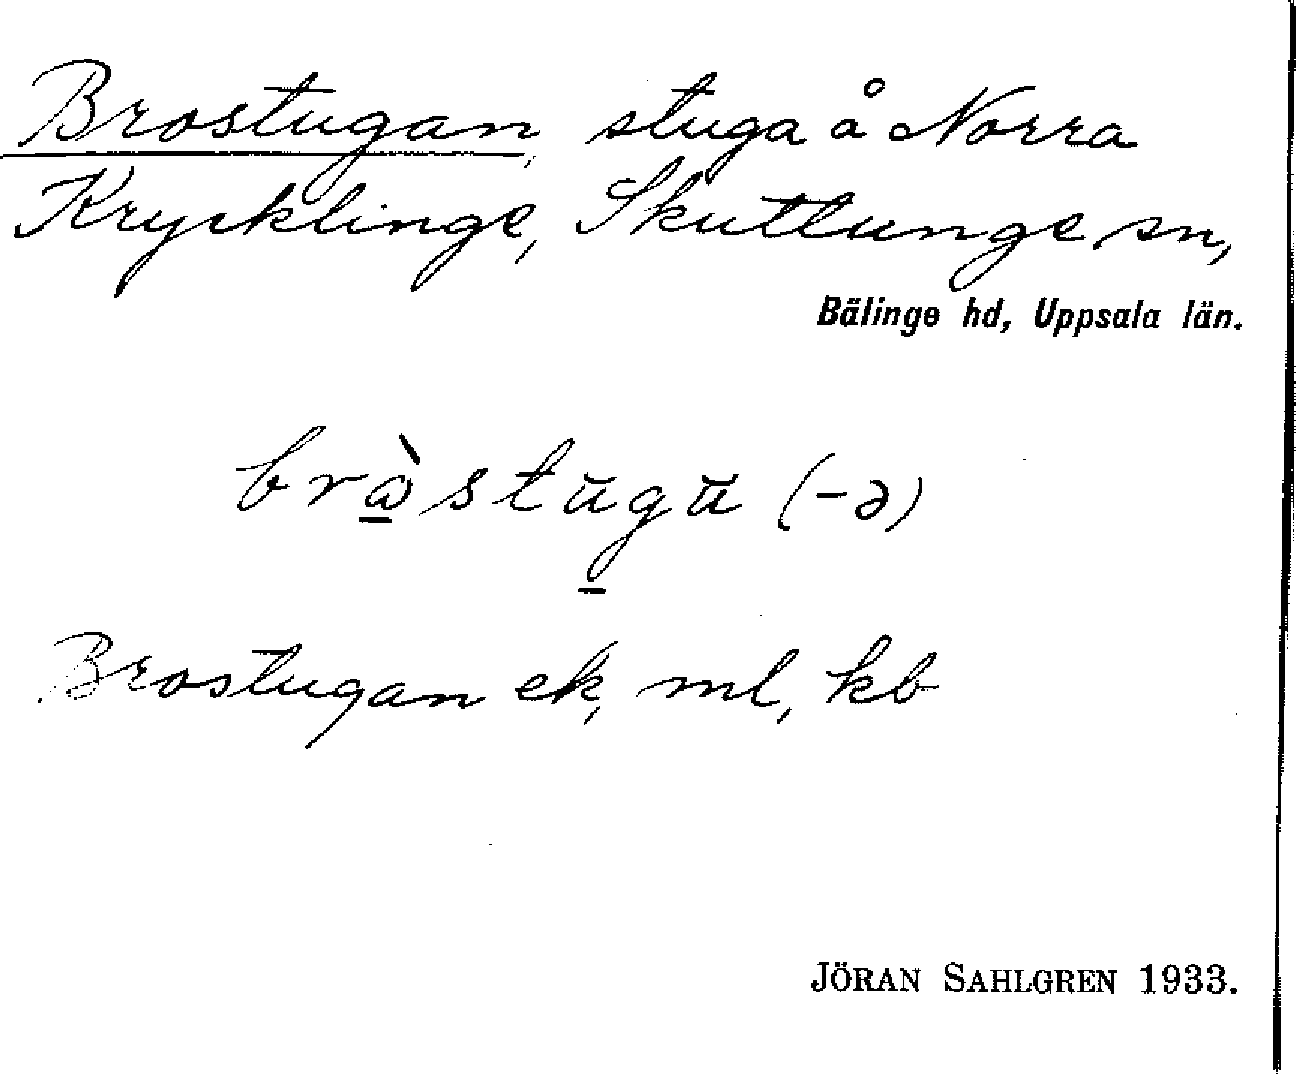 Brostugan, stuga å Norra
Krycklinge, Skuttunge sn,
Bälinge hd, Uppsala län.
brὼ̱stūgū (-ə)
Brostugan ek, ml, kb
JÖRAN SAHLGREN 1933.